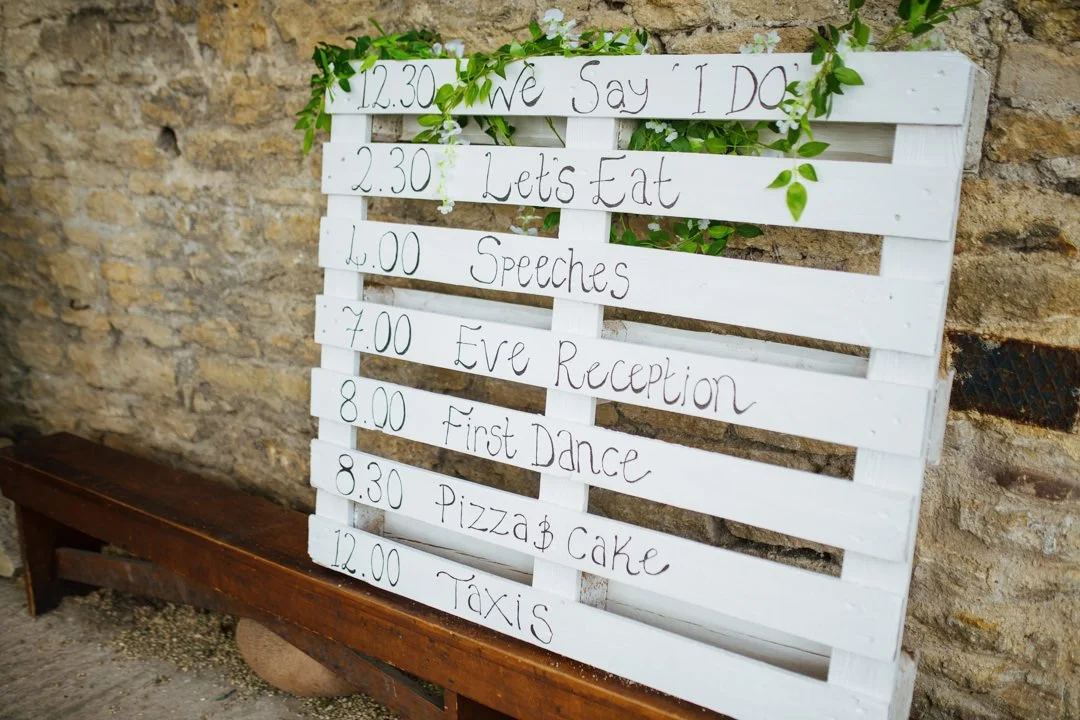 12.30 We Say 'I DO'
2.30 Let's Eat
4.00 Speeches
7.00 Eve Reception
8.00 First Dance
8.30 Pizza & Cake
12.00 Taxis